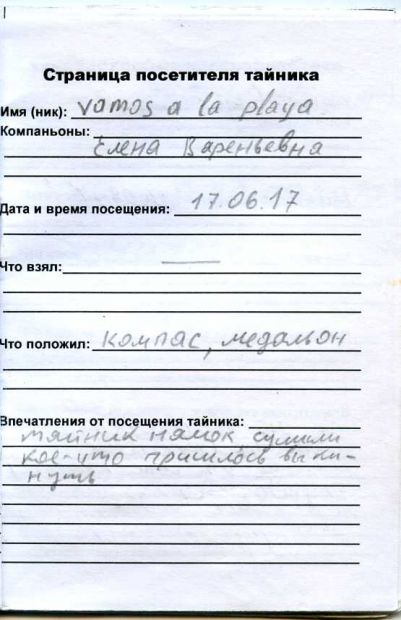 Страница посетителя тайника
Имя (ник): vamos a la playa
Компаньоны:
Елена Вареньевна
Дата и время посещения: 17.06.17
Что взял: —
Что положил: компас, медальон
Впечатления от посещения тайника:
тайник намок, сушили
кое-что пришлось выки-
нуть